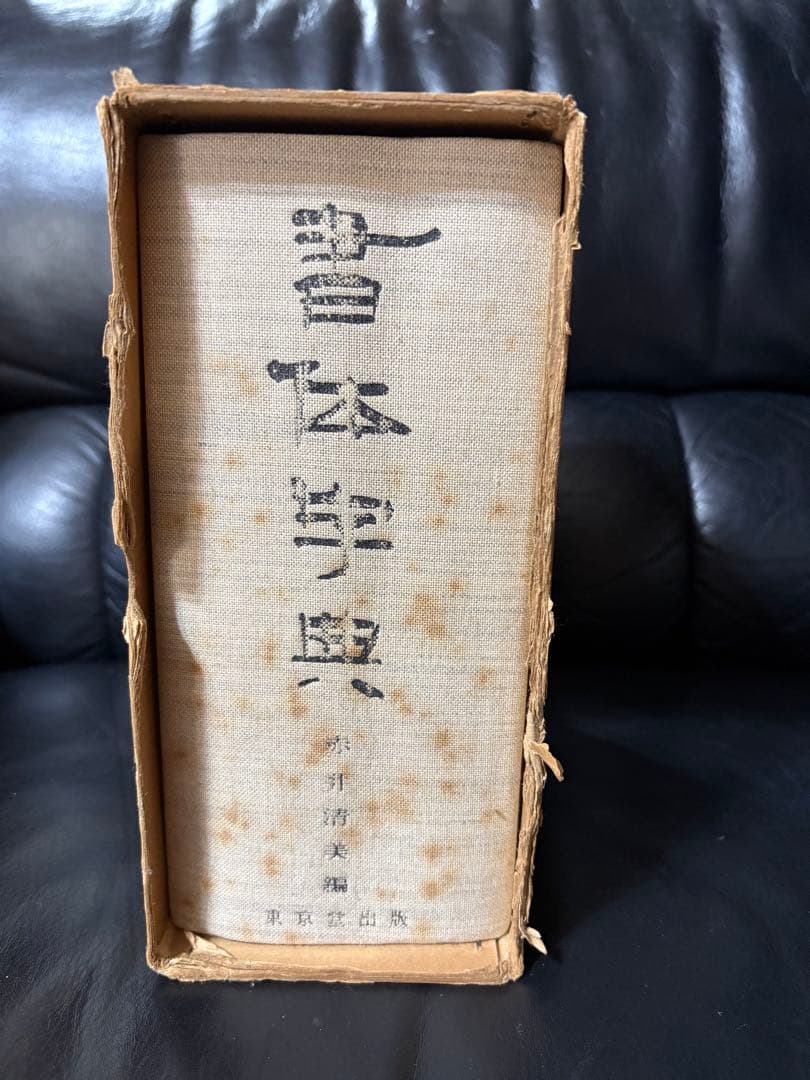 書体字典
赤井清美編
東京堂出版